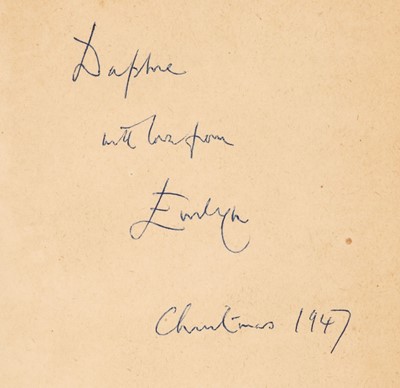 Daphne
with love from
Evelyn
Christmas 1947